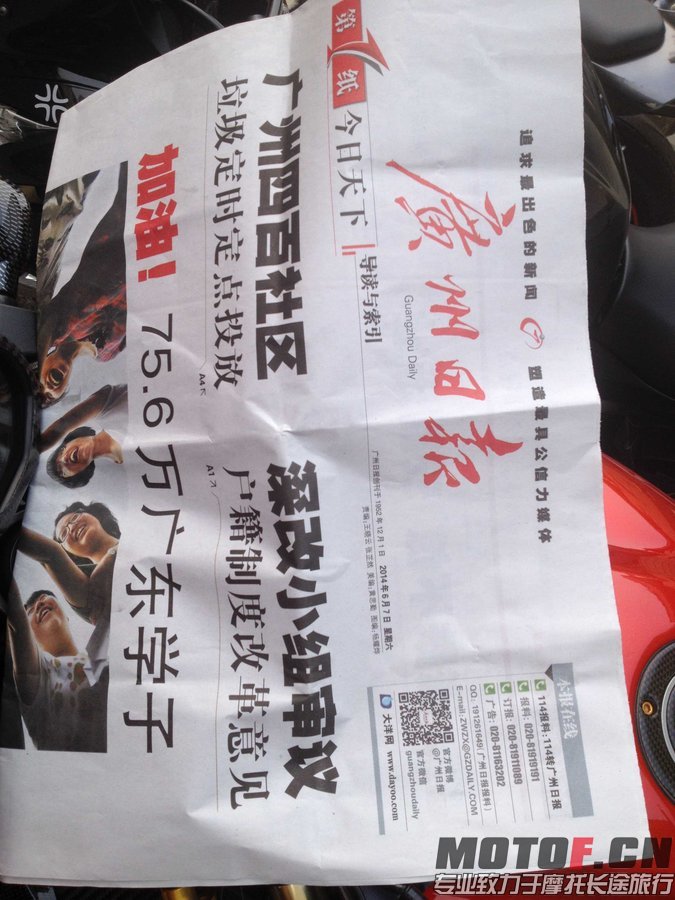 追求最出色的新闻 塑造最具公信力媒体
廣州日报
Guangzhou Daily
本报在线
114报料:114转广州日报
报料: 020-81919191
订报: 020-81911089
广告: 020-81163202
QQ: 191261649(广州日报报料)
E-mail:ZWZX@GZDAILY.COM
官方微博
@广州日报
官方微信
guangzhoudaily
大洋网 www.dayoo.com
广州日报创刊于1952年12月1日 2014年6月7日 星期六
第1纸
今日天下
导读与索引
广州四百社区
垃圾定时定点投放
深改小组审议
户籍制度改革意见
加油!
75.6万广东学子
MOTOF.CN
专业致力于摩托长途旅行